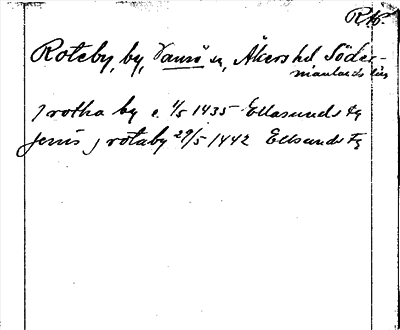 RK.
Roteby, by, Vansö sn, Åkers hd Söder-
manlands län
j rotha by c. 1/5 1435 Ellasunds fg
Jenis j rotaby 29/5 1442 Ellsunds fg